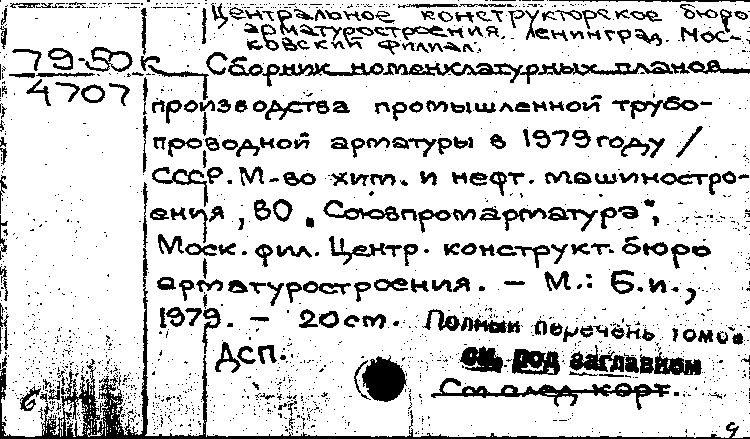 Центральное конструкторское бюро
арматуростроения. Ленинград. Мос-
ковский филиал.
79-50к Сборник номенклатурных планов
4707 производства промышленной трубо-
проводной арматуры в 1979 году /
СССР. М-во хим. и нефт. машиностро-
ения, ВО „Союзпромарматура",
Моск. фил. Центр. конструкт. бюро
арматуростроения. - М.: Б.и.,
1979. - 20 см. Полный перечень томов
ДСП. см. под заглавием
См след. карт.